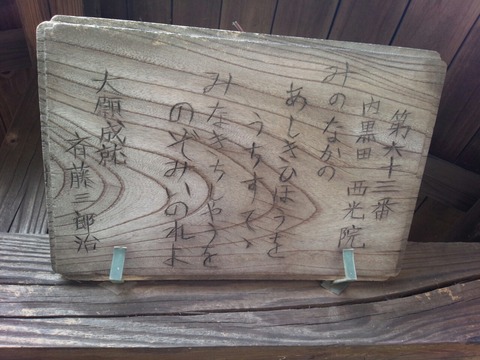 第六十三番
内黒田 西光院
みのなかの
あしきひほうを
うちすてゝ
みなきちじやうを
のぞみいのれよ
大願成就
斉藤三郎治